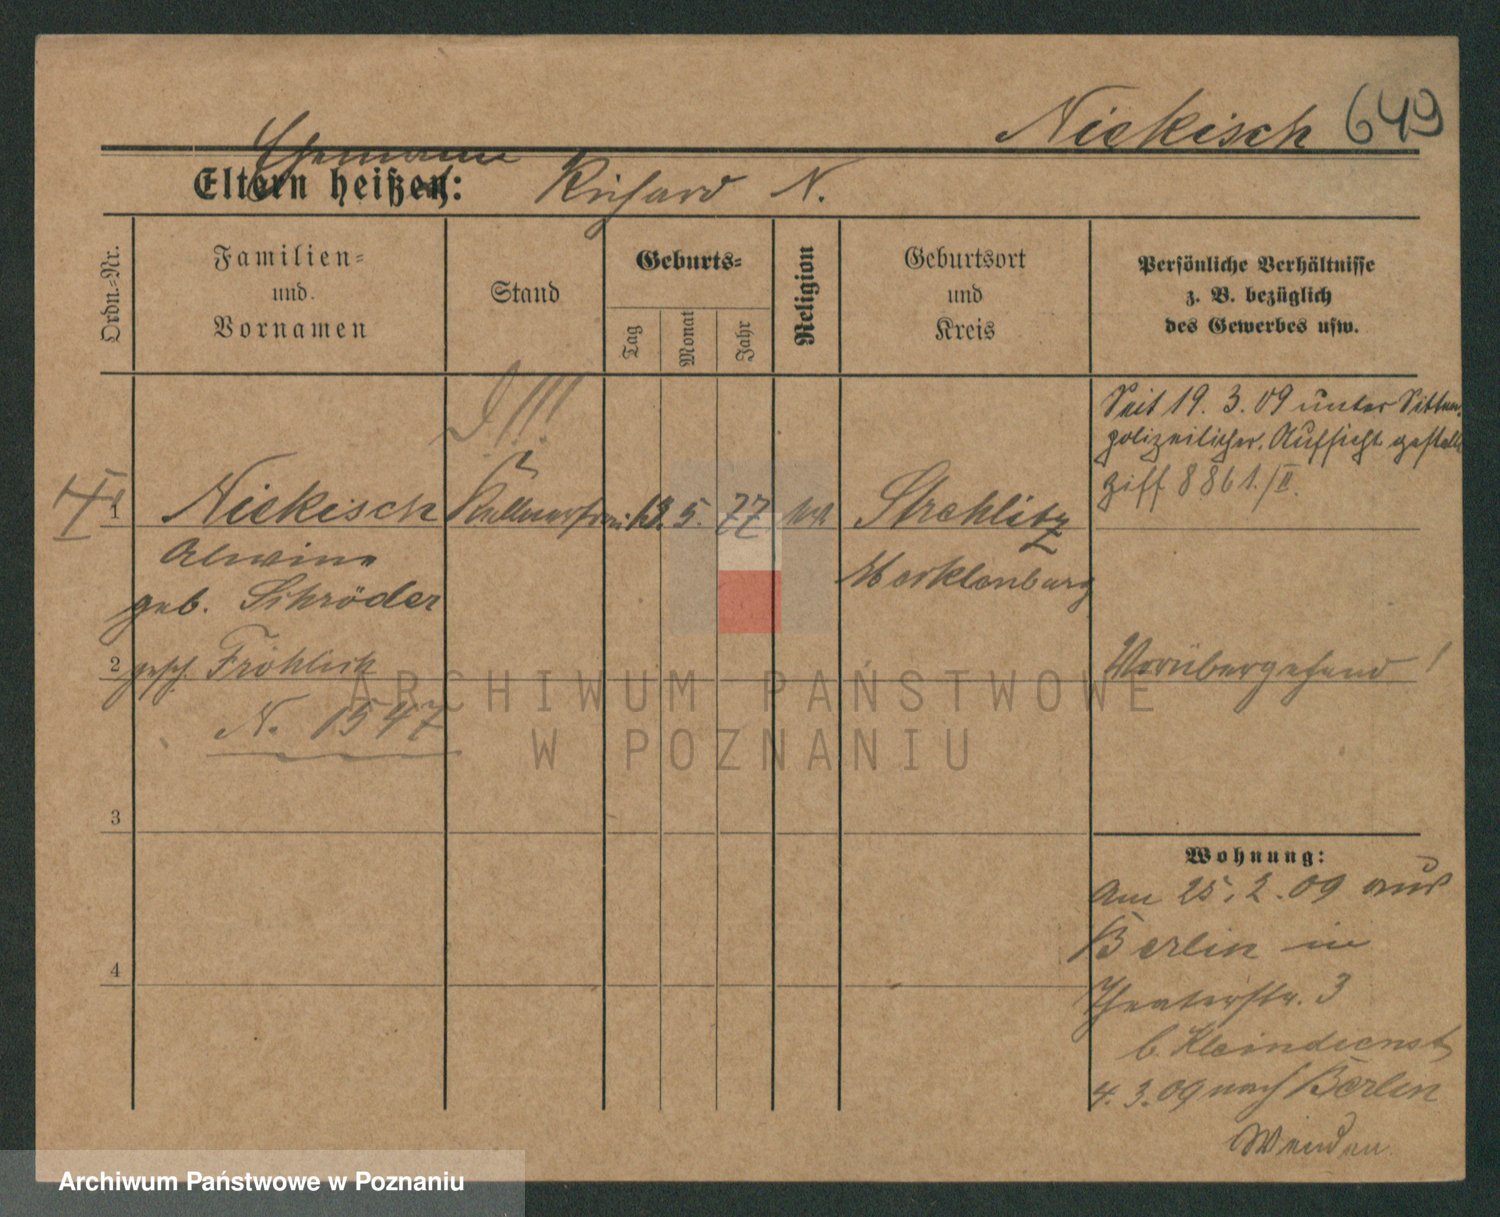 Niekisch 649
Ehemann
Eltern heißen: Richard N.
Ordn.-Nr.
Familien-
und
Vornamen
Stand
Geburts-
Tag
Monat
Jahr
Religion
Geburtsort
und
Kreis
Persönliche Verhältnisse
z. B. bezüglich
des Gewerbes usw.
Seit 19. 3. 09 unter Sitten-
polizeilicher Aufsicht gestellt
Ziff 8861./II.
1 Niekisch Kellnerfrau 13. 5. 77 Strehlitz
Alwine
Mecklenburg
geb. Schröder
2 gesch. Fröhlich
Vorübergehend!
N. 1547
3
4
Wohnung:
Am 25. 2. 09 aus
Berlin in
Theaterstr. 3
b. Kleindienst
4. 3. 09 nach Berlin
ARCHIWUM PAŃSTWOWE
W POZNANIU
Archiwum Państwowe w Poznaniu